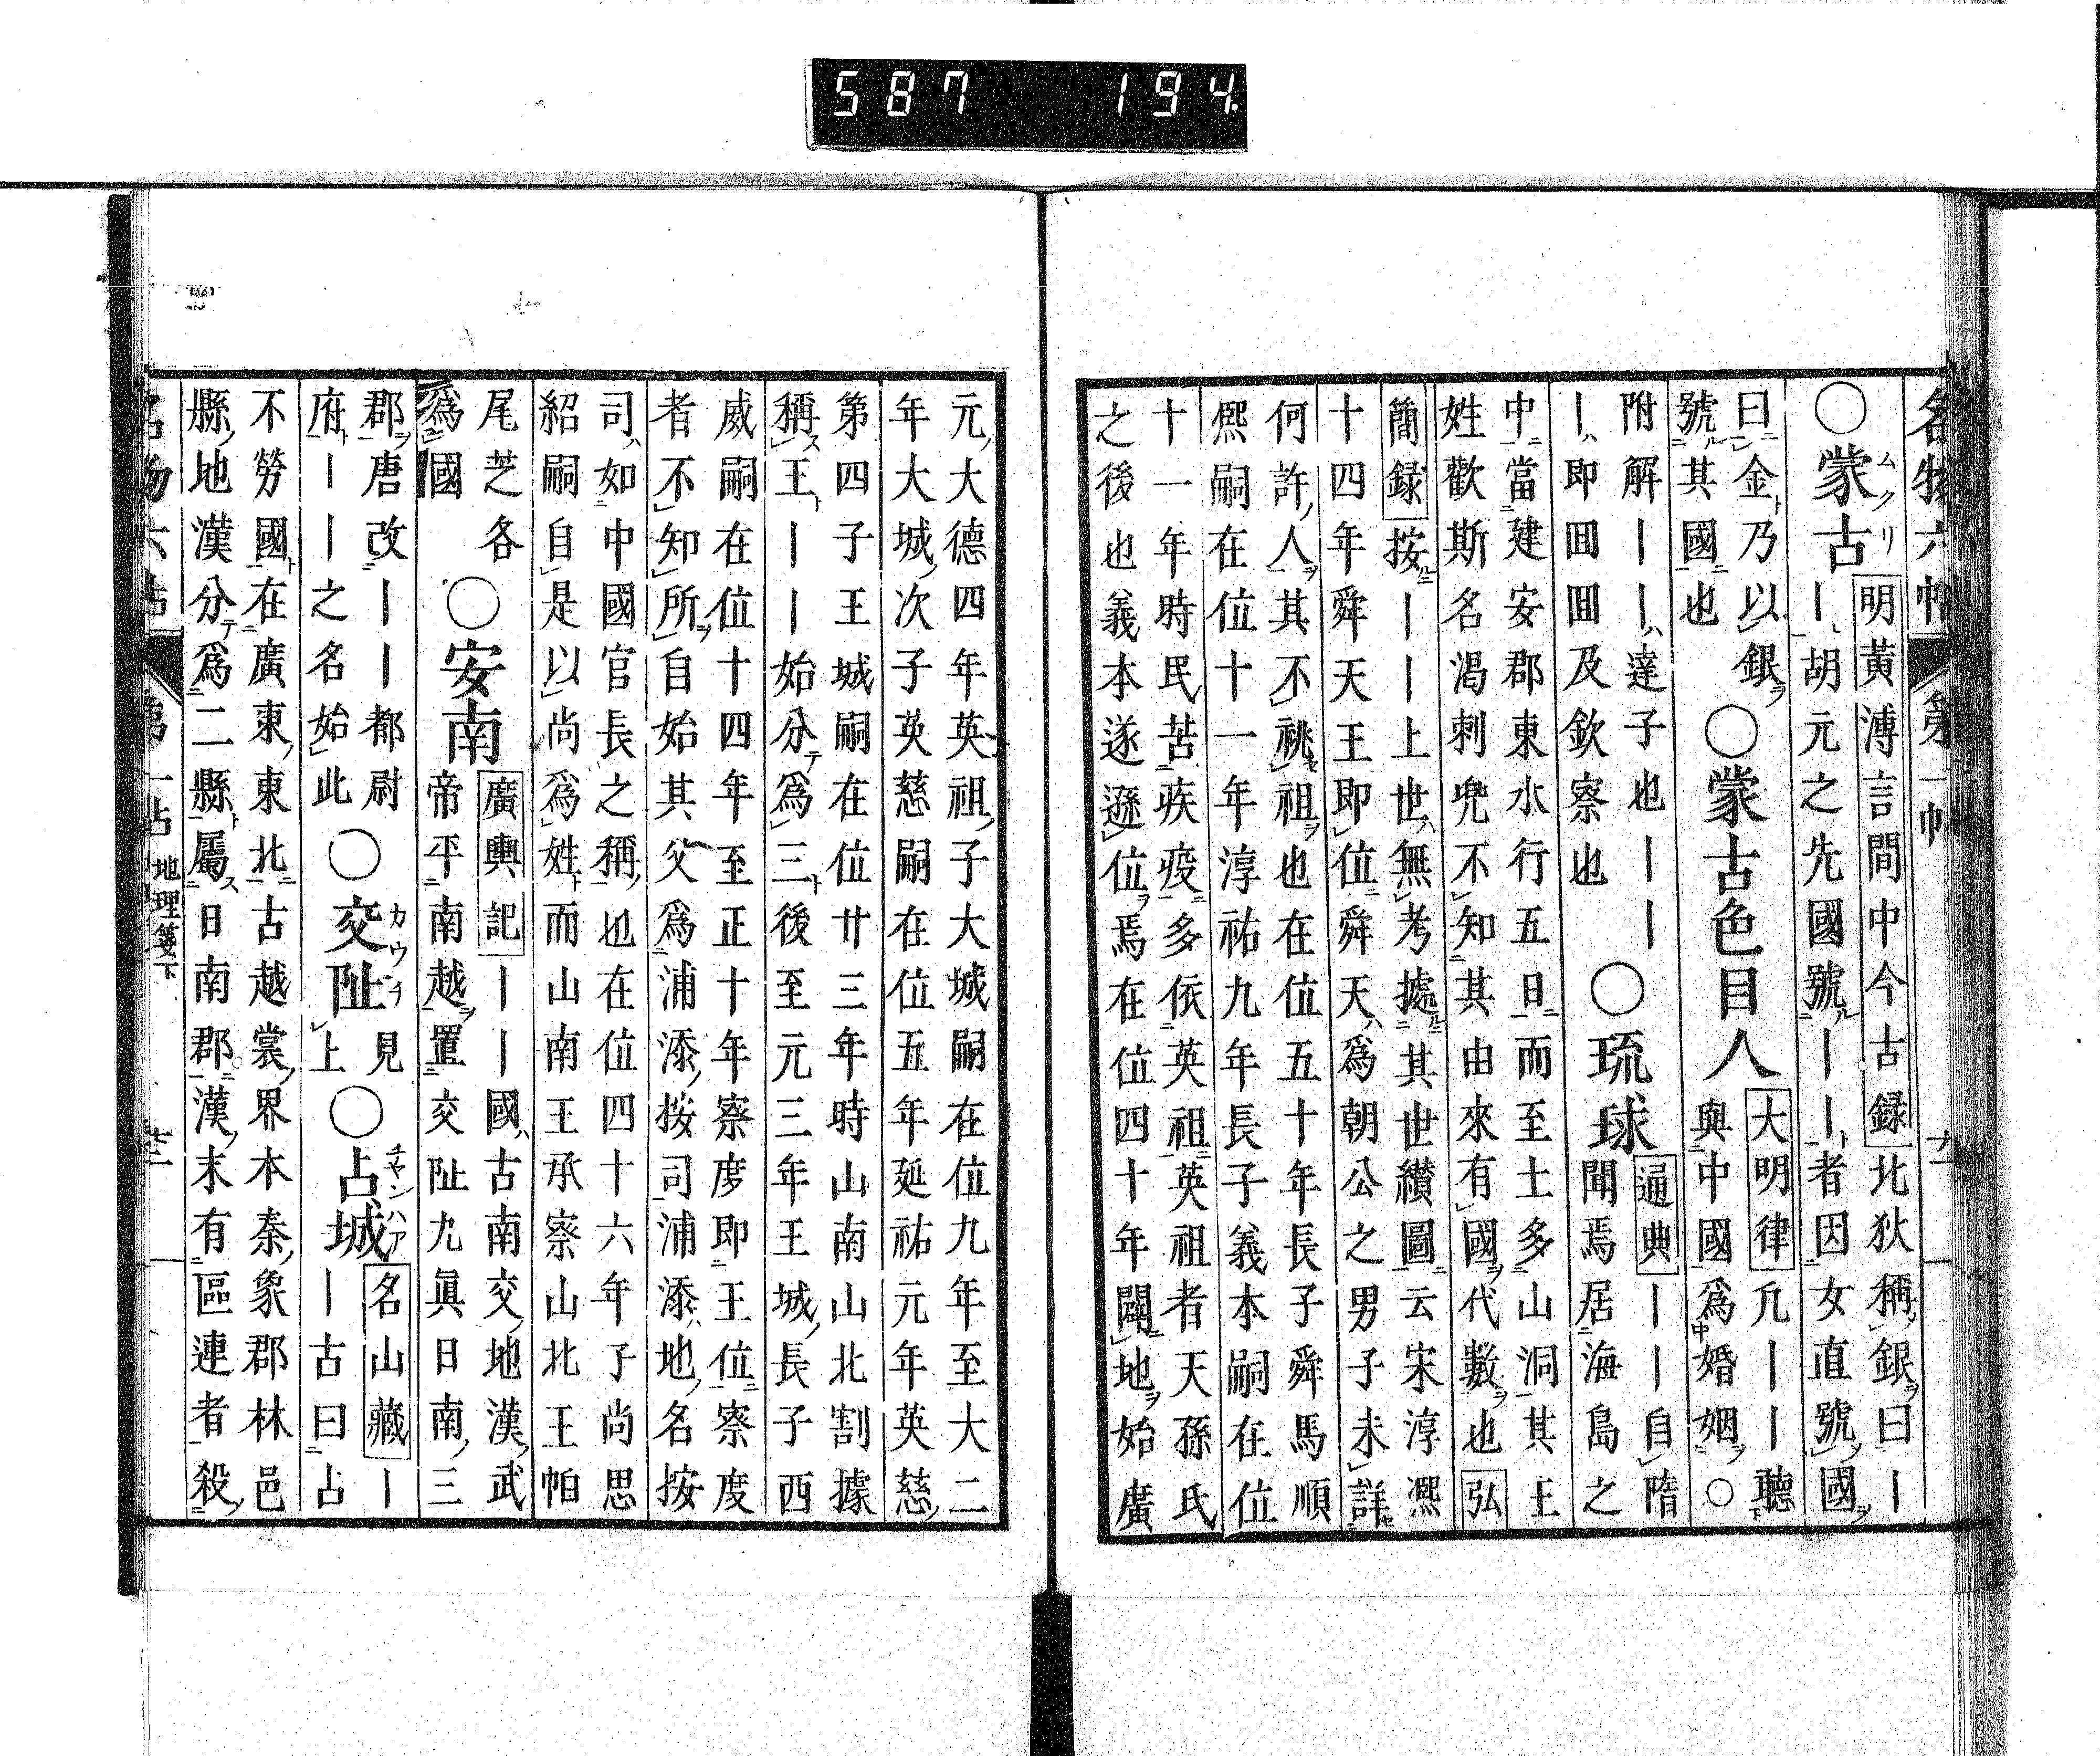 587 194
名物六帖 第一帖
○蒙古
ムクリ
明黄溥言間中今古録北狄稱銀曰｜
｜胡元之先國號｜｜者因女直號國
曰金乃以銀
號其國也
○蒙古色目人
大明律凢｜｜聽
與中國爲婚姻○
附解｜｜達子也｜｜
｜即囬囬及欽察也
○琉球
通典｜｜自隋
聞焉居海島之
中當建安郡東水行五日而至土多山洞其王
姓歡斯名渇刺兜不知其由來有國代數也弘
簡録按｜｜上世無考據其世纉圖云宋淳凞
十四年舜天王即位舜天爲朝公之男子未詳
何許人其不祧祖也在位五十年長子舜馬順
凞嗣在位十一年淳祐九年長子義本嗣在位
十一年時民苦疾疫多依英祖英祖者天孫氏
之後也義本遂遜位焉在位四十年闢地始廣
元大德四年英祖子大城嗣在位九年至大二
年大城次子英慈嗣在位五年延祐元年英慈
第四子王城嗣在位廿三年時山南山北割據
稱王｜｜始分爲三後至元三年王城長子西
威嗣在位十四年至正十年察度即王位察度
者不知所自始其父爲浦添按司浦添地名按
司如中國官長之稱也在位四十六年子尚思
紹嗣自是以尚爲姓而山南王承察山北王帕
尾芝各
爲國
○安南
廣輿記｜｜國古南交地漢武
帝平南越置交阯九眞日南三
郡唐改｜｜都尉
府｜｜之名始此
○交阯
カウチ
見
上
○占城
チヤンハア
名山藏｜
｜古曰占
不勞國在廣東東北古越裳界本秦象郡林邑
縣地漢分爲二縣屬日南郡漢末有區連者殺
名物六帖 第一帖 地理箋下